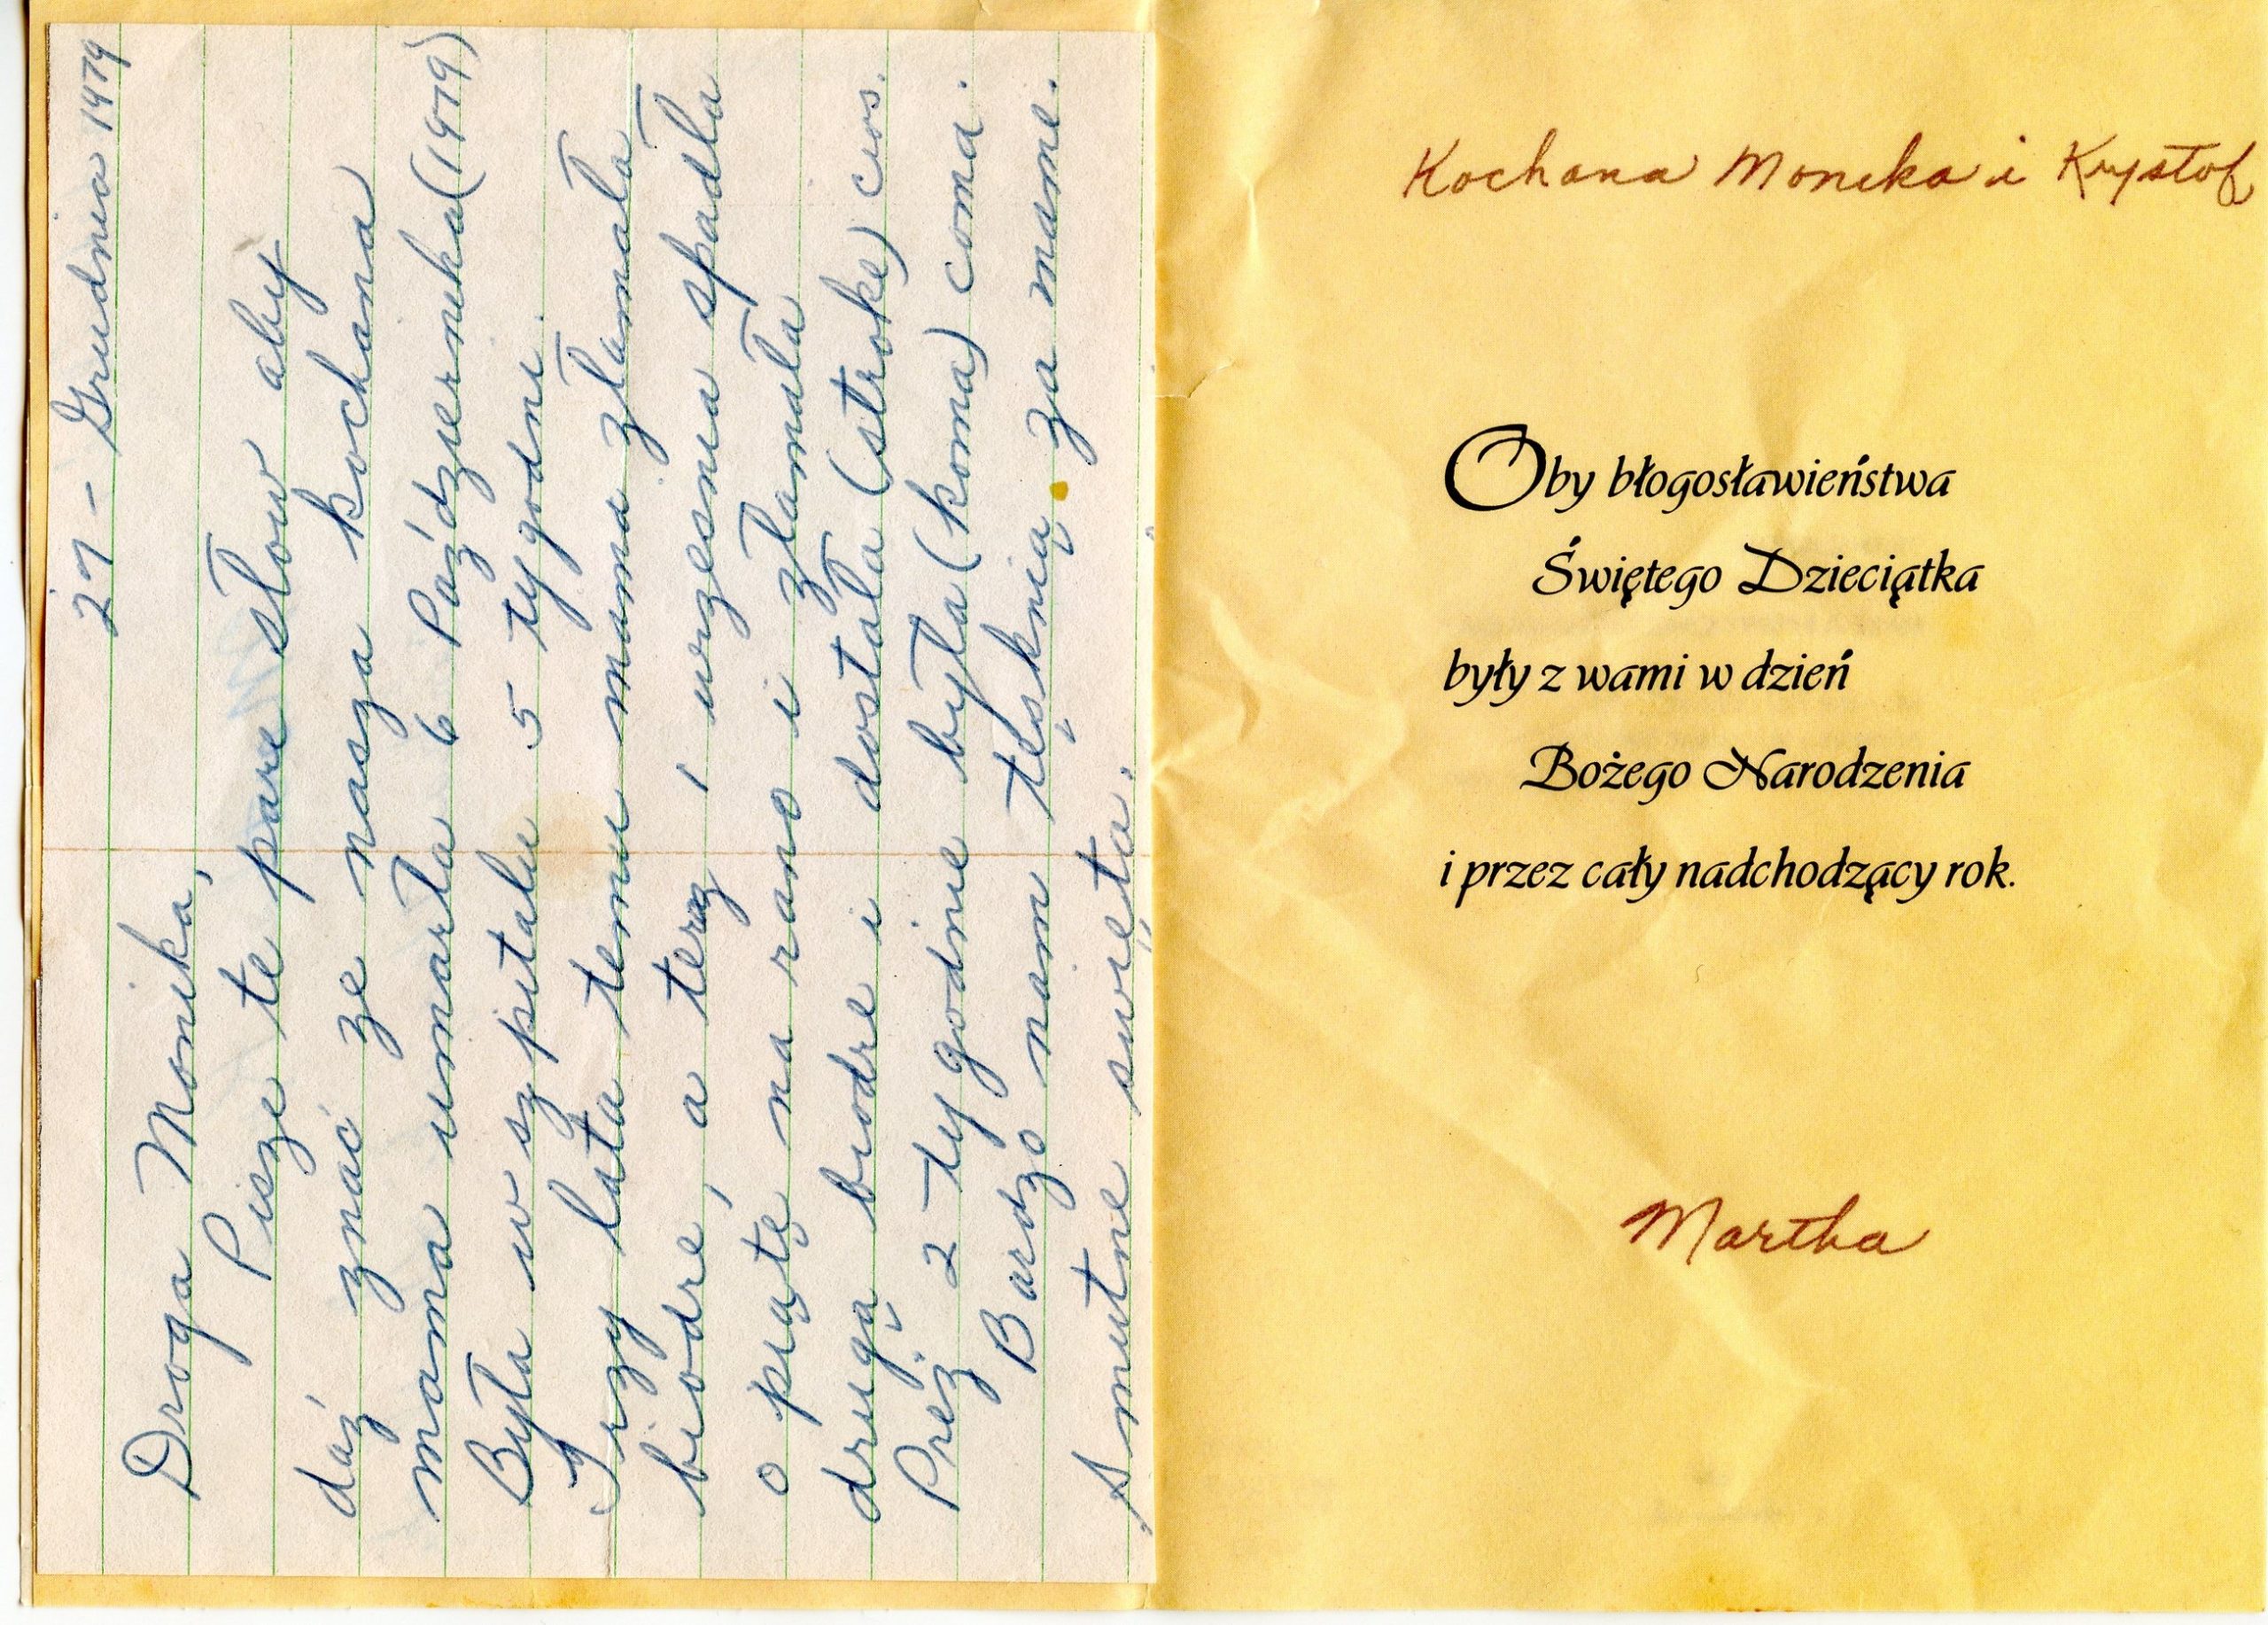 27 - Grudnia 1979
Droga Monika,
Pisze te pare słow aby
dáź znać ze nasza kochana
mama umarła 6 Października (1979)
Była w szpitalu 5 tygodni.
Trzy lata temu mama złamała
biodre, a teraz 1 wrzesnia spadła
o piątę na rano i złamała
drugą biodre i dostała (stroke) cios.
Preź 2 tygodnie była (koma) coma.
Bardzo nam tęsknią za mame.
Smutne swięta.
Kochana Monika i Krystof
Oby błogosławieństwa
Świętego Dzieciątka
były z wami w dzień
Bożego Narodzenia
i przez cały nadchodzący rok.
Martha